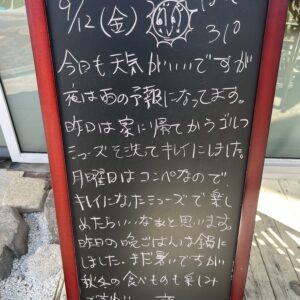 9/12(金)
31°
今日も天気がいいですが
夜は雨の予報になってます。
昨日は家に帰てからゴルフ
シューズを洗てキレイにしました。
月曜日はコンペなので
キレイになたシューズで楽し
めたらいいなぁと思います。
昨日の晩ごはんは鍋に
しました。まだ暑いですが
秋冬の食べものも楽しみ